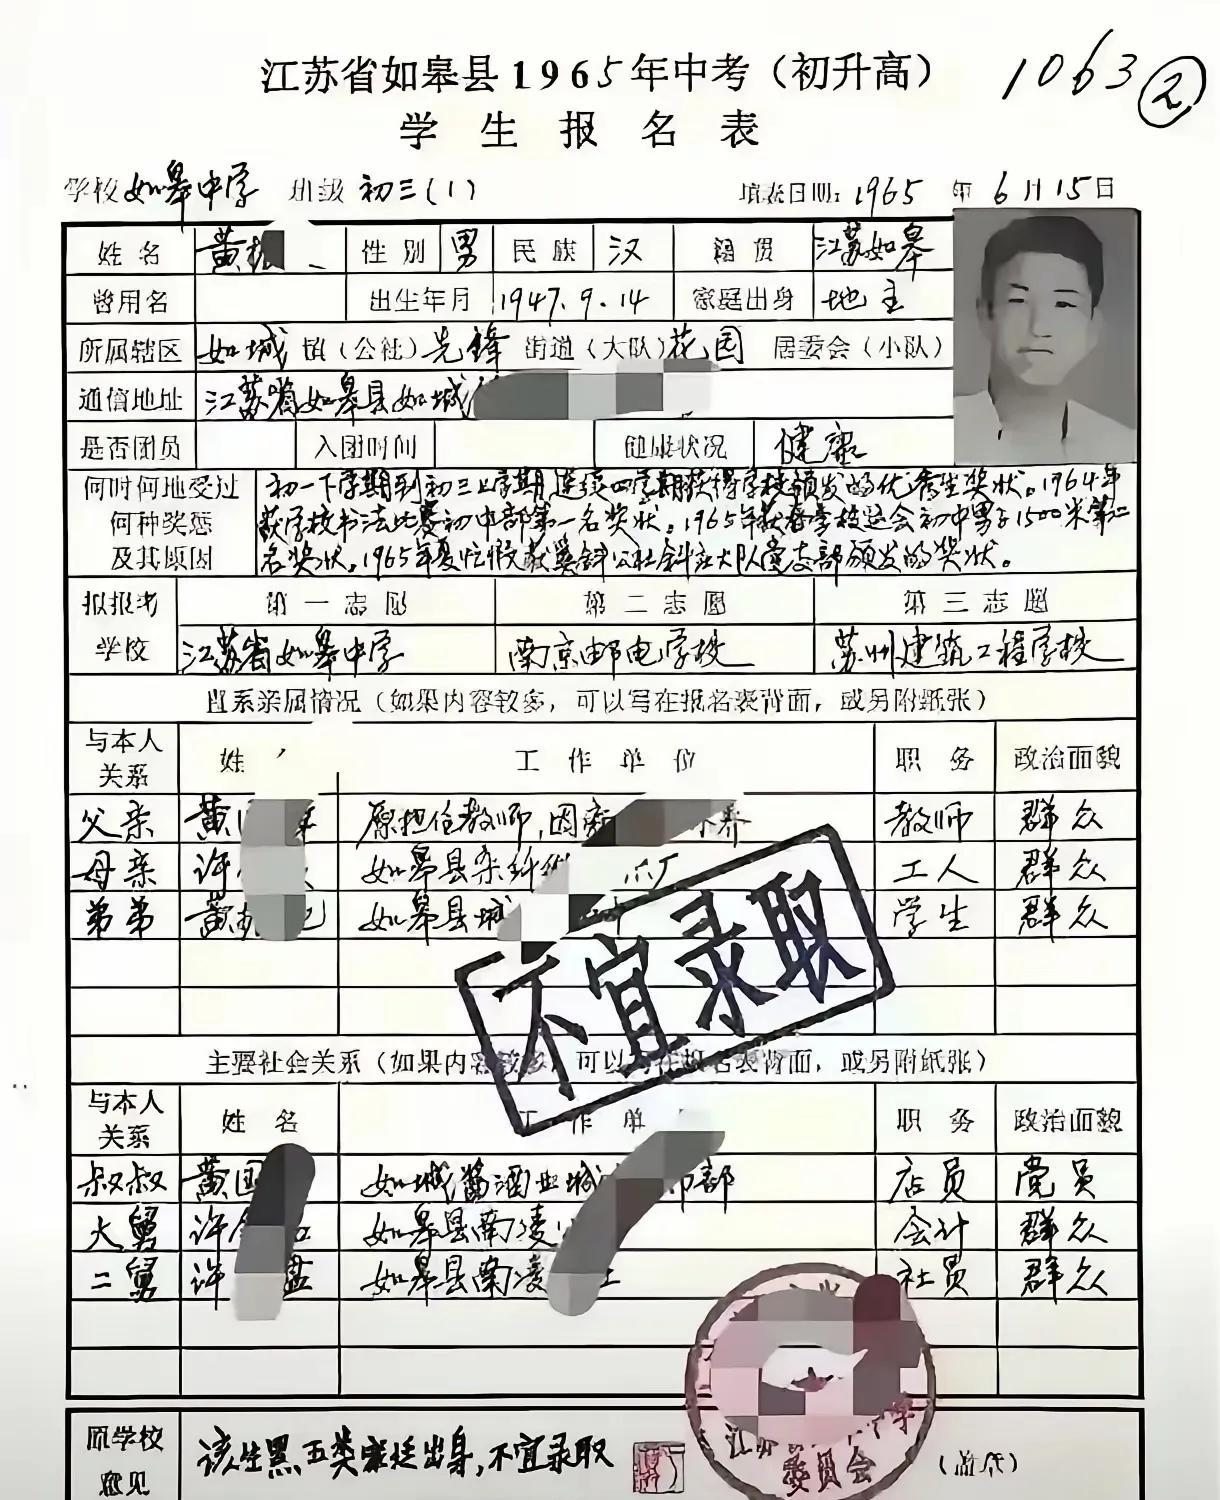 江苏省如皋县1965年中考（初升高）
1063 ②
学生报名表
学校 如皋中学 班级 初三(1) 填表日期：1965年6月15日
姓名 黄振 性别 男 民族 汉 籍贯 江苏如皋
曾用名 出生年月 1947.9.14 家庭出身 地主
所属辖区 如城镇（公社）先锋街道（大队）花园居委会（小队）
通信地址 江苏省如皋县如城
是否团员 入团时间 健康状况 健康
何时何地受过 初一下学期到初三上学期连续四学期获得学校颁发的优秀生奖状。1964年
何种奖惩 获学校书法比赛初中部第一名奖状。1965年获春季校运会初中男子1500米第二
及其原因 名奖状。1965年夏忙假获公社大队党支部颁发的奖状。
拟报考 第一志愿 第二志愿 第三志愿
学校 江苏省如皋中学 南京邮电学校 苏州建筑工程学校
直系亲属情况（如果内容较多，可以写在报名表背面，或另附纸张）
与本人关系 姓 工作单位 职务 政治面貌
父亲 黄 原担任教师，因 教师 群众
母亲 许 如皋县 厂 工人 群众
弟弟 黄 如皋县城 学生 群众
不宜录取
主要社会关系（如果内容较多，可以写在报名表背面，或另附纸张）
与本人关系 姓名 工作单 职务 政治面貌
叔叔 黄国 如城酱酒业城 部 店员 党员
大舅 许 如皋县南凌 会计 群众
二舅 许 如皋县南凌 社员 群众
原学校意见 该生黑五类家庭出身，不宜录取 委员会（盖章）